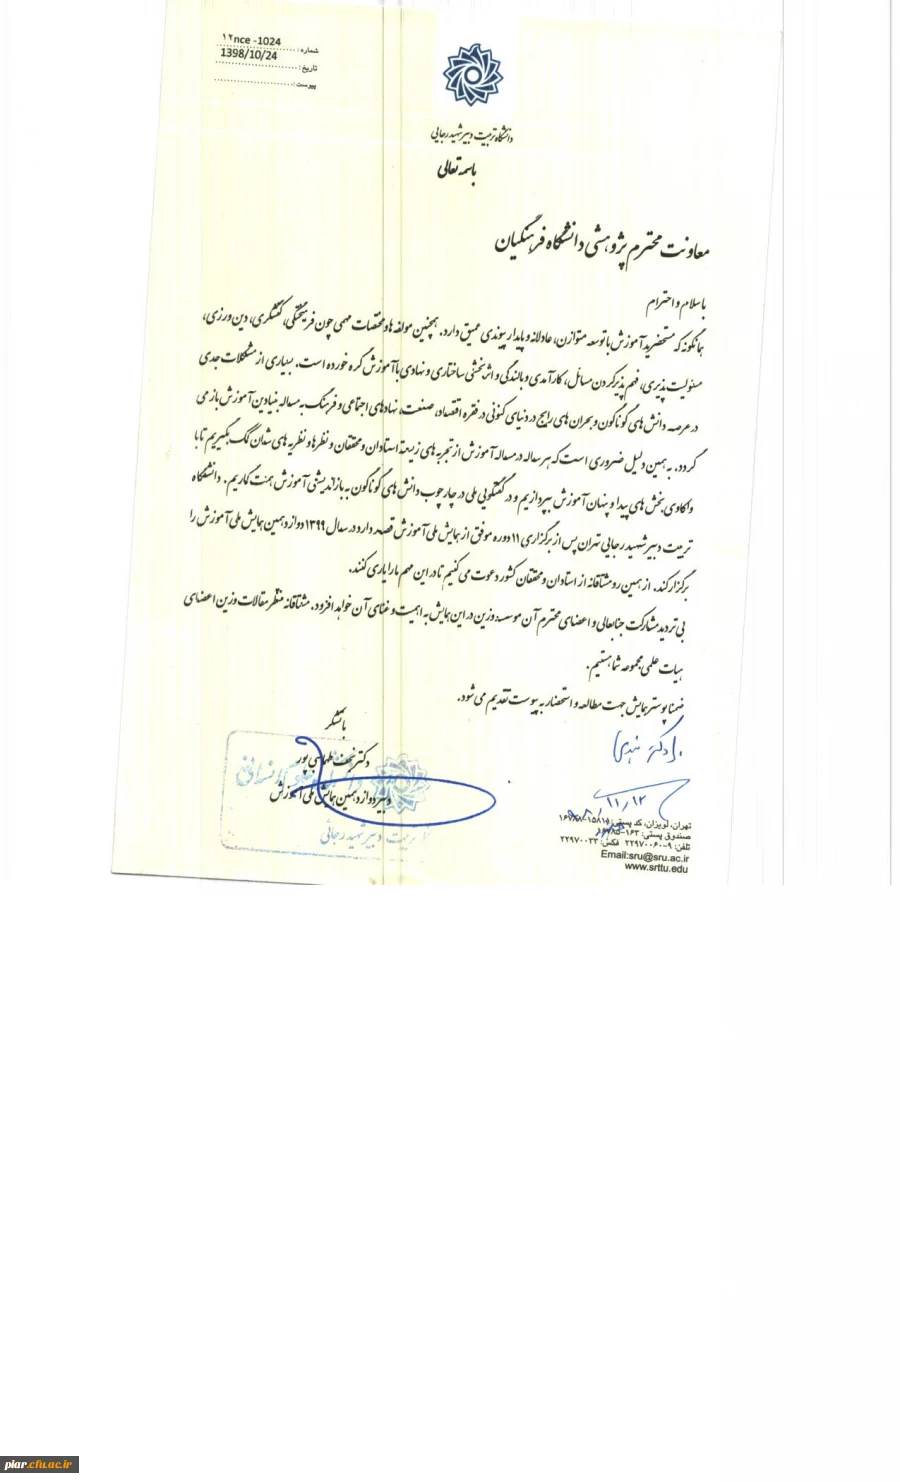 شماره: ۱۲nce -1024
تاریخ: 1398/10/24
پیوست:
دانشگاه تربیت دبیر شهید رجایی
باسمه تعالی
معاونت محترم پژوهشی دانشگاه فرهنگیان
با سلام و احترام
همانگونه که مستحضرید آموزش با توسعه متوازن، عادلانه و پایدار پیوندی عمیق دارد. همچنین مولفه ها و مختصات مهمی چون فرهیختگی، کنشگری، دین ورزی،
مسئولیت پذیری، فهم پذیر کردن مسائل، کارآمدی و بالندگی و اثربخشی ساختاری و نهادی با آموزش گره خورده است. بسیاری از مشکلات جدی
در عرصه دانش های گوناگون و بحران های رایج در دنیای کنونی در فقره اقتصاد، صنعت، نهادهای اجتماعی و فرهنگ به مساله بنیادین آموزش باز می
گردد. به همین دلیل ضروری است که هر ساله در مساله آموزش از تجربه های زیسته استادان و محققان و نظرها و نظریه های شان کمک بگیریم تا با
واکاوی بخش های پیدا و پنهان آموزش بپردازیم و در گفتگویی ملی در چارچوب دانش های گوناگون به بازاندیشی آموزش همت گماریم. دانشگاه
تربیت دبیر شهید رجایی تهران پس از برگزاری ۱۱ دوره موفق از همایش ملی آموزش قصد دارد در سال ۱۳۹۹ دوازدهمین همایش ملی آموزش را
برگزار کند. از همین رو مشتاقانه از استادان و محققان کشور دعوت می کنیم تا در این مهم ما را یاری کنند.
بی تردید مشارکت جنابعالی و اعضای محترم آن موسسه وزین در این همایش به اهمیت و غنای آن خواهد افزود. مشتاقانه منتظر مقالات وزین اعضای
هیات علمی مجموعه شما هستیم.
ضمنا پوستر همایش جهت مطالعه و استحضار به پیوست تقدیم می شود.
با تشکر
دکتر نجف طهماسبی پور
دبیر دوازدهمین همایش ملی آموزش
تربیت دبیر شهید رجائی
۱۱/۱۲
تهران، لویزان، کد پستی:
صندوق پستی:
تلفن: ۹-۲۲۹۷۰۰۶۰ فکس: ۲۲۹۷۰۰۳۳
Email:sru@sru.ac.ir
www.srttu.edu
piar.cfu.ac.ir